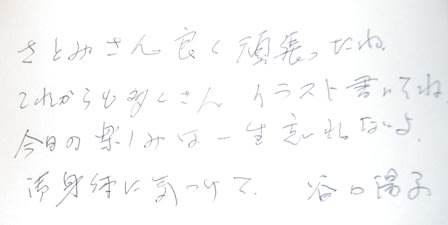 さとみさん良く頑張ったね
これからも多くさん イラスト書いてね
今日の楽しみは一生忘れないよ
御身体に気つけて、 谷口陽子